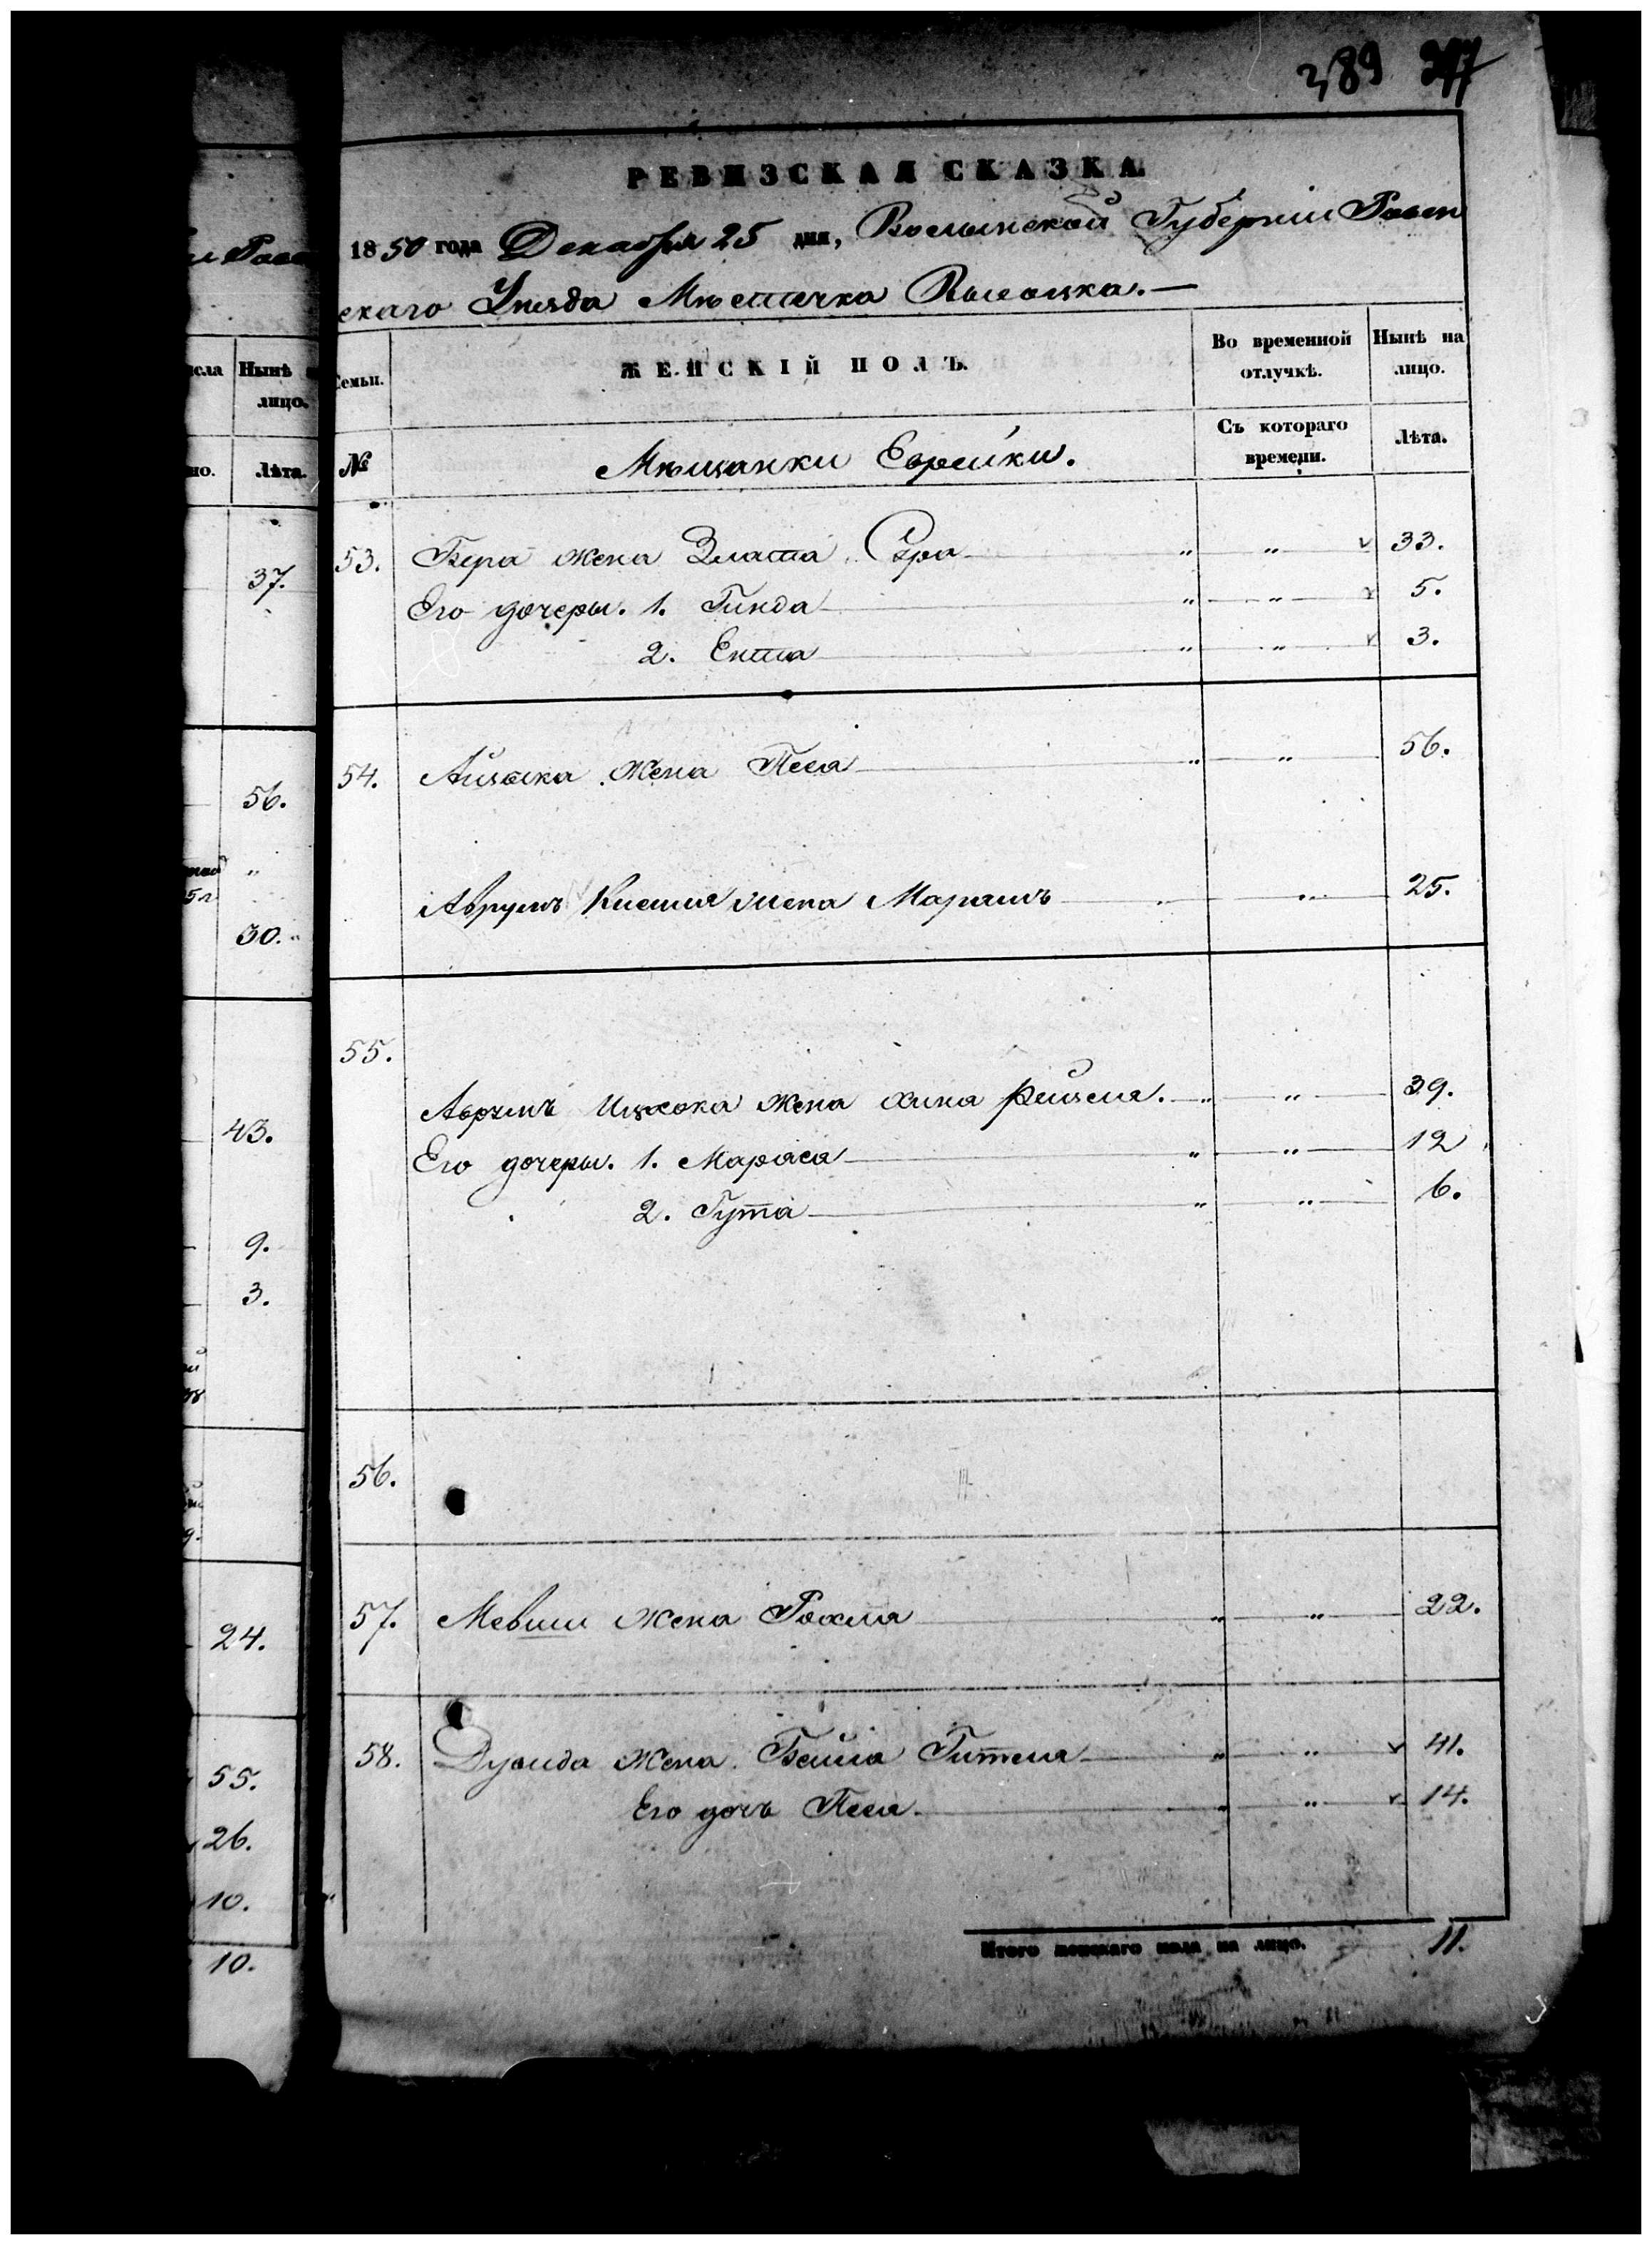 389 277
РЕВИЗСКАЯ СКАЗКА
1850 года Декабря 25 дня, Волынской Губернiи Ровен
скаго Уѣзда Мѣстечка Высоцка.—
Семьи.
ЖЕНСКІЙ ПОЛЪ.
Во временной отлучкѣ.
Нынѣ на лицо.
№
Мѣщанки Еврейки.
Съ котораго времени.
Лѣта.
53. Бера жена Злата Сора " " 33.
Его дочеры. 1. Гинда " " 5.
2. Ента " " 3.
54. Айзика жена Песя " " 56.
Аврумъ жена 25.
55.
Аврумъ Ицхока жена Хина Рейзеля. " " 39.
Его дочеры. 1. Маріася " " 12
2. Гута " " 6.
56.
57. жена Рохля " " 22.
58. Дувида жена Бейла Гителя " " 41.
Его дочь Песя. " " 14.
Итого женскаго пола на лицо. 11.
Нынѣ
лицо.
Лѣта.
37.
56.
"
30.
43.
9.
3.
24.
55.
26.
10.
10.